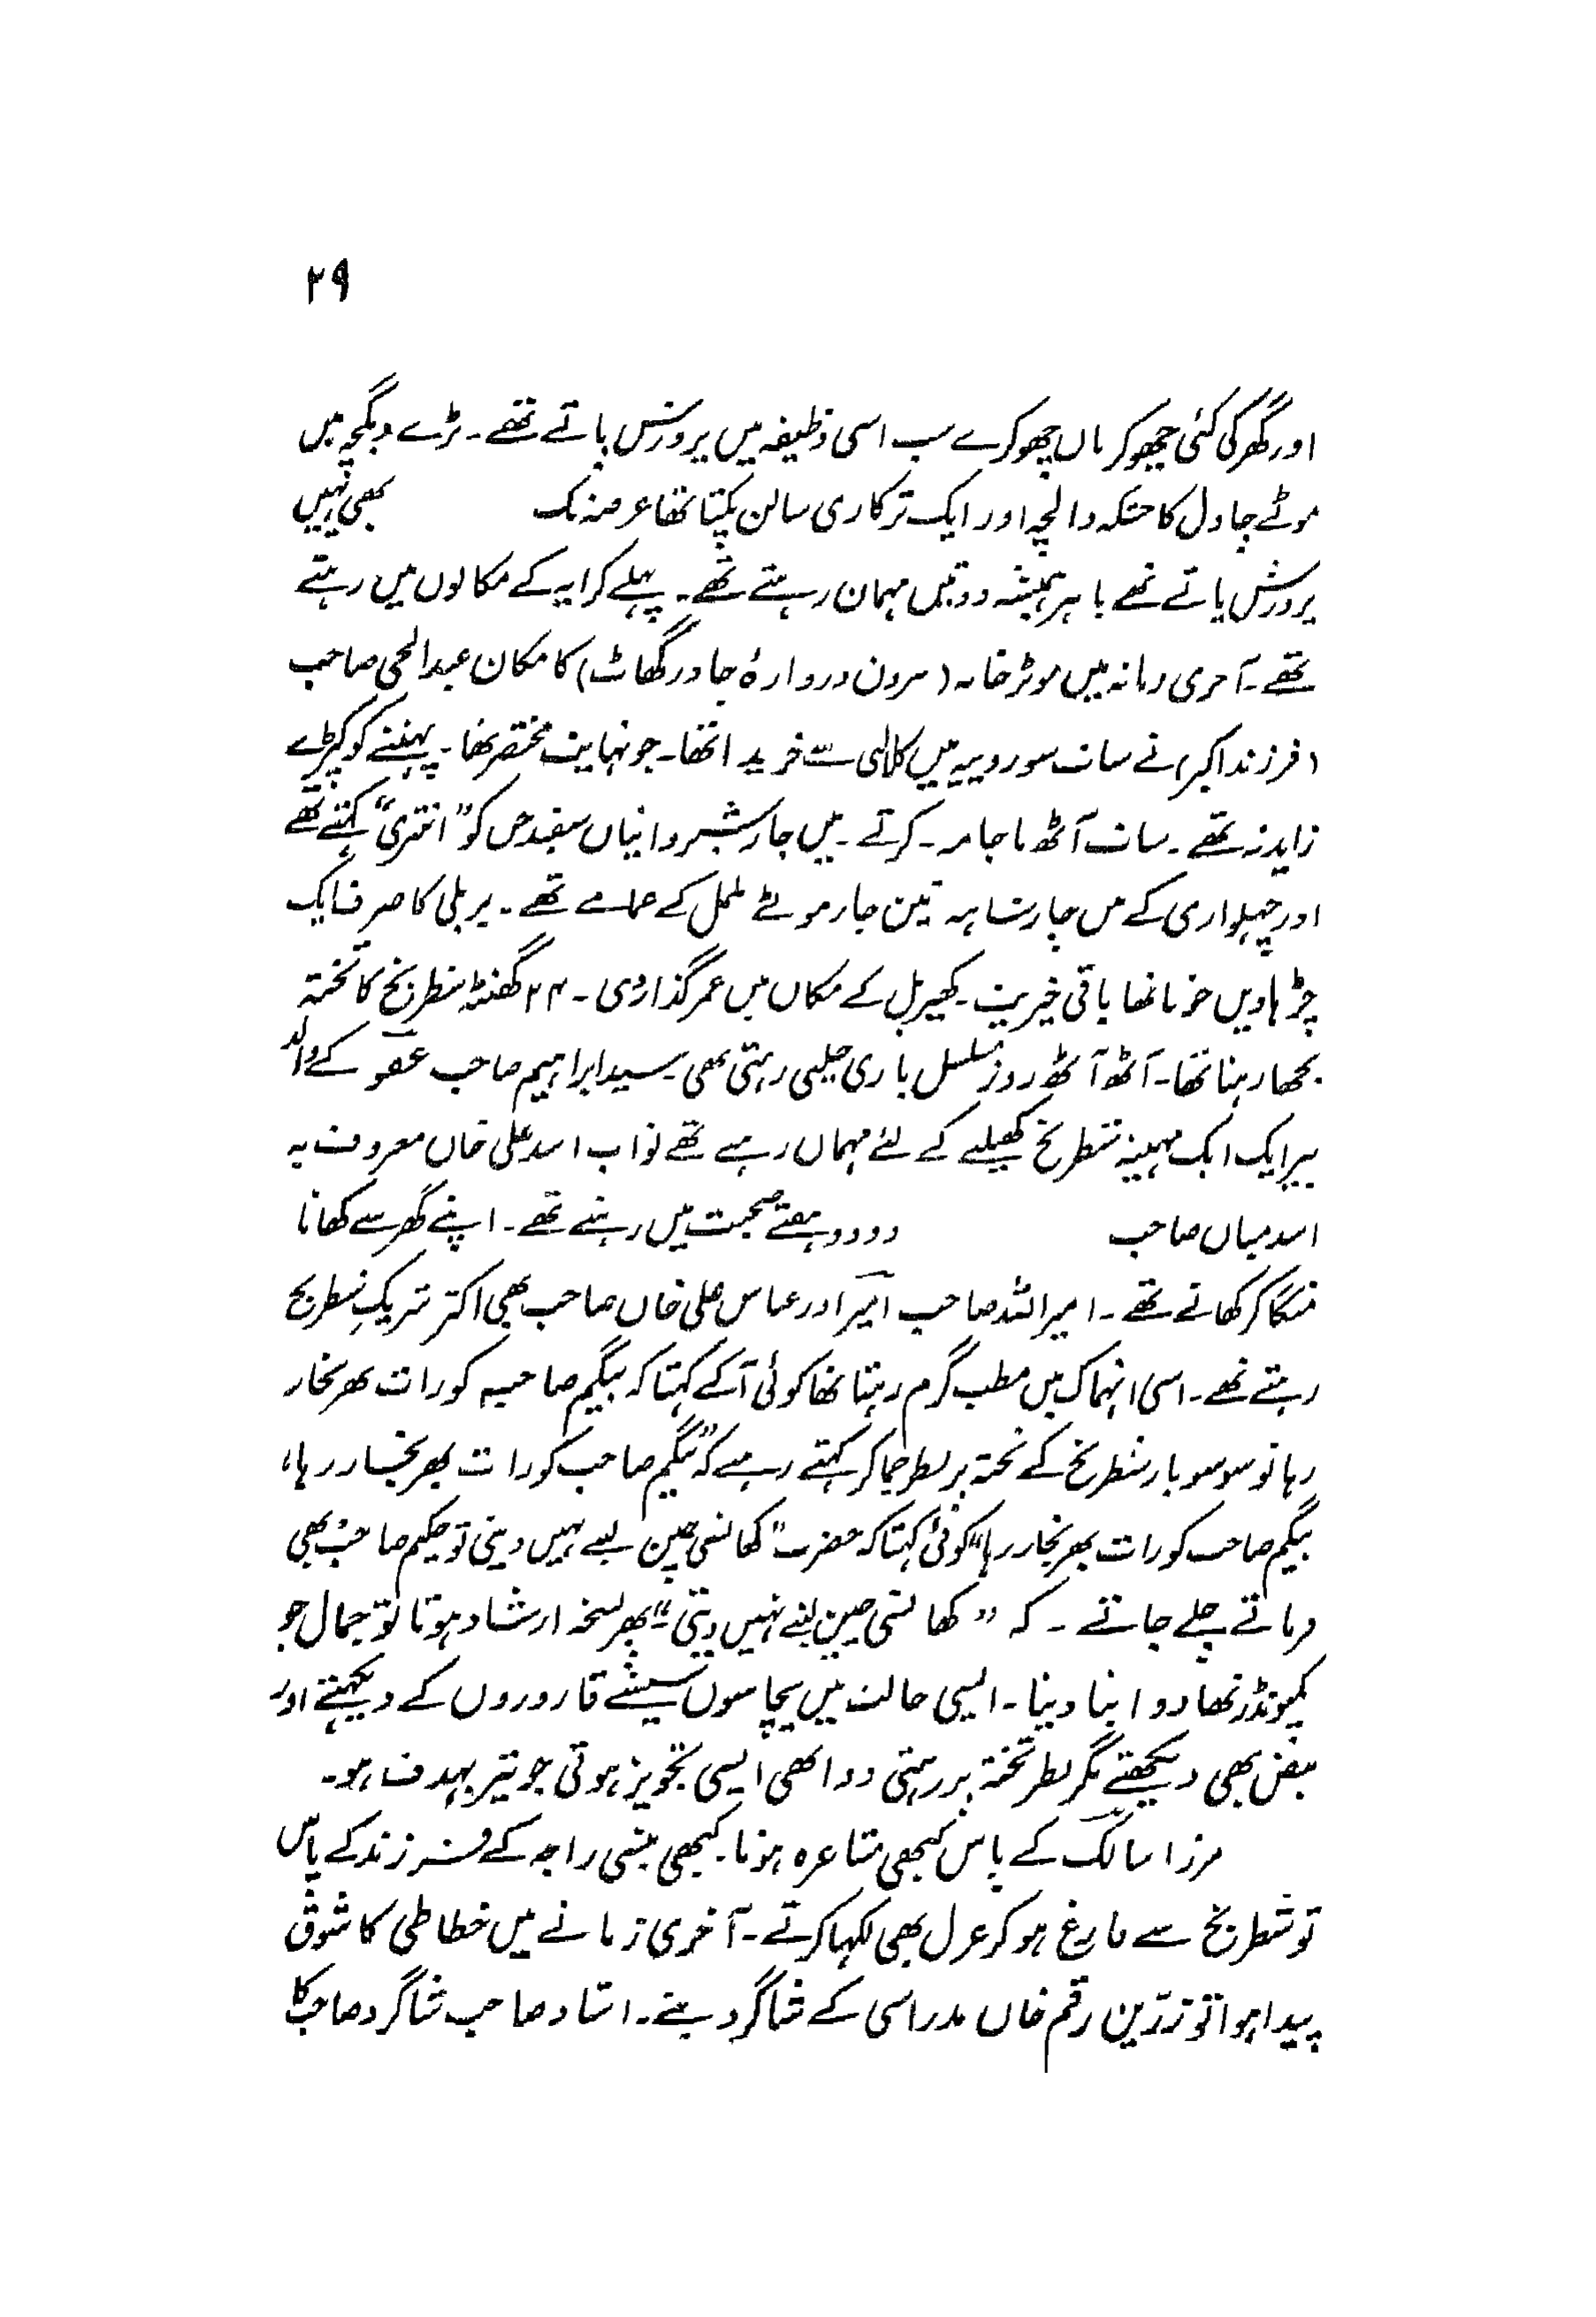 ۲۹
اور گھر کی کئی چھوکریاں چھوکرے سب اسی وظیفہ میں پرورش پاتے تھے۔ بڑے دیگچہ میں
موٹے چاول کا خشکہ دالچہ اور ایک ترکاری سالن پکتا تھا عرصہ تک بھی یہیں
پرورش پاتے تھے باہر ہمیشہ دو تین مہمان رہتے تھے۔ پہلے کرایہ کے مکانوں میں رہتے
تھے۔ آخری زمانہ میں موٹر خانہ (بیرون دروازۂ چادر گھاٹ) کا مکان عبدالحی صاحب
(فرزند اکبر) نے سات سو روپیہ میں کلالی سے خریدا تھا۔ جو نہایت مختصر تھا۔ پہننے کو کپڑے
زاید نہ تھے۔ سات آٹھ پاجامہ۔ کرتے۔ تین چار شیروانیاں سفید جس کو "انتری" کہتے تھے
اور چہلواری کے تین چار شایہ تین چار موٹے ململ کے عمامے تھے۔ بریلی کا صرف ایک
چڑھاویں جوتا تھا باقی خیریت۔ کھپریل کے مکان میں عمر گذار دی۔ ۲۴ گھنٹہ شطرنج کا تختہ
بچھا رہتا تھا۔ آٹھ آٹھ روز مسلسل بازی چلتی رہتی تھی۔ سید ابراہیم صاحب عفو کے والد
پیر ایک ایک مہینہ شطرنج کھیلنے کے لئے مہمان رہے تھے نواب اسد علی خاں معروف بہ
اسد میاں صاحب دو دو ہفتے صحبت میں رہتے تھے۔ اپنے گھر سے کھانا
منگا کر کھاتے تھے۔ امیر اللہ صاحب امیر اور عباس علی خاں صاحب بھی اکثر شریکِ شطرنج
رہتے تھے۔ اسی انہماک میں مطب گرم رہتا تھا کوئی آ کے کہتا کہ بیگم صاحبہ کو رات بھر بخار
رہا تو سو سو بار شطرنج کے تختہ پر نظر جما کر کہتے رہے کہ "بیگم صاحب کو رات بھر بخار رہا،
بیگم صاحب کو رات بھر بخار رہا" کوئی کہتا کہ حضرت "کھانسی چین لینے نہیں دیتی تو حکیم صاحب بھی
فرماتے چلے جاتے۔ کہ "کھانسی چین لینے نہیں دیتی"۔ پھر نسخہ ارشاد ہوتا تو جمال جو
کمپونڈر تھا دوا بنا دیتا۔ ایسی حالت میں پچاسوں شیشے قاروروں کے دیکھتے اور
نبض بھی دیکھتے مگر نظر تختہ پر رہتی دوا بھی ایسی تجویز ہوتی جو تیر بہدف ہو۔
مرزا سالک کے پاس کبھی مشاعرہ ہوتا۔ کبھی بنسی راجہ کے فرزند کے پاس
تو شطرنج سے فارغ ہو کر غزل بھی لکہا کرتے۔ آخری زمانے میں خطاطی کا شوق
پیدا ہوا تو زرّین رقم خاں مدراسی کے شاگرد بنے۔ استاد صاحب شاگرد صاحب کا